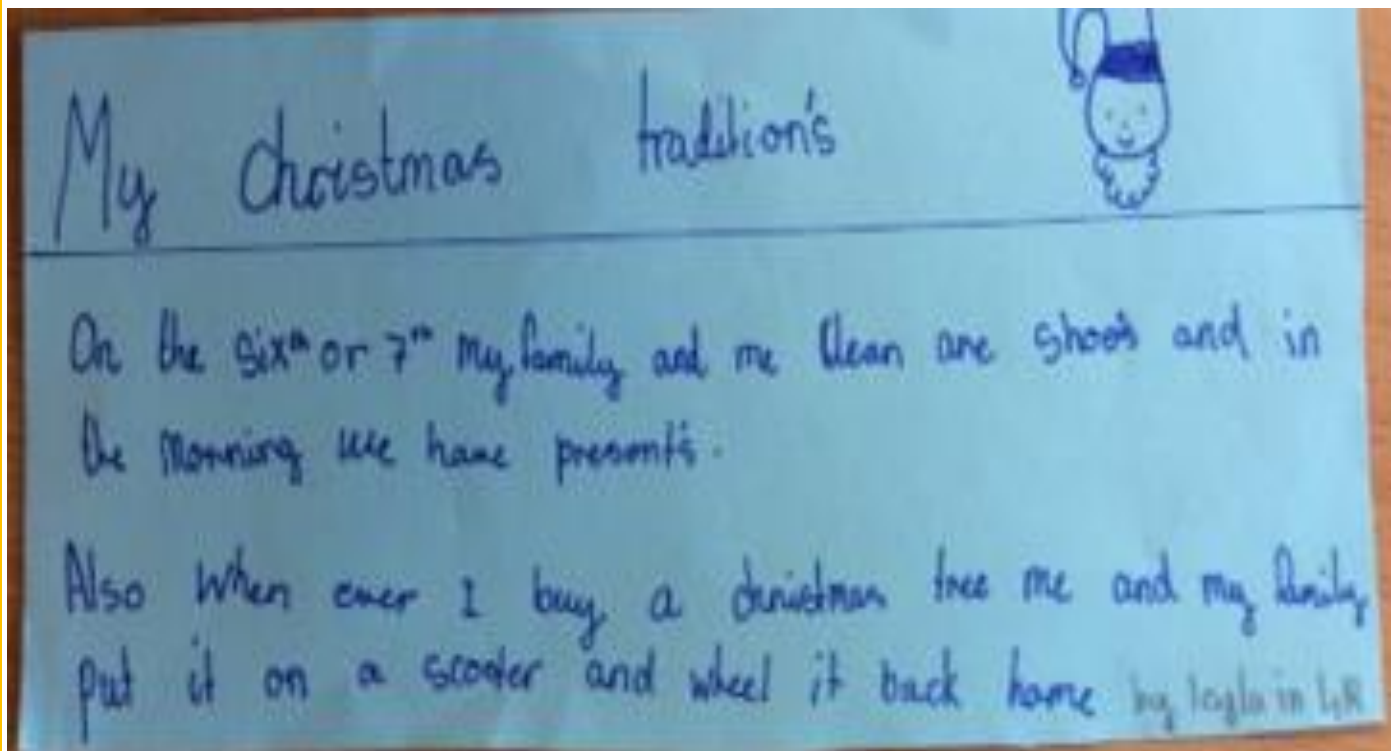 My christmas tradition's
On the sixth or 7th My family and me Clean are shoes and in
the Morning we have present's.
Also when ever I buy a christmas tree me and my family
put it on a scooter and wheel it back home by layla in 4R